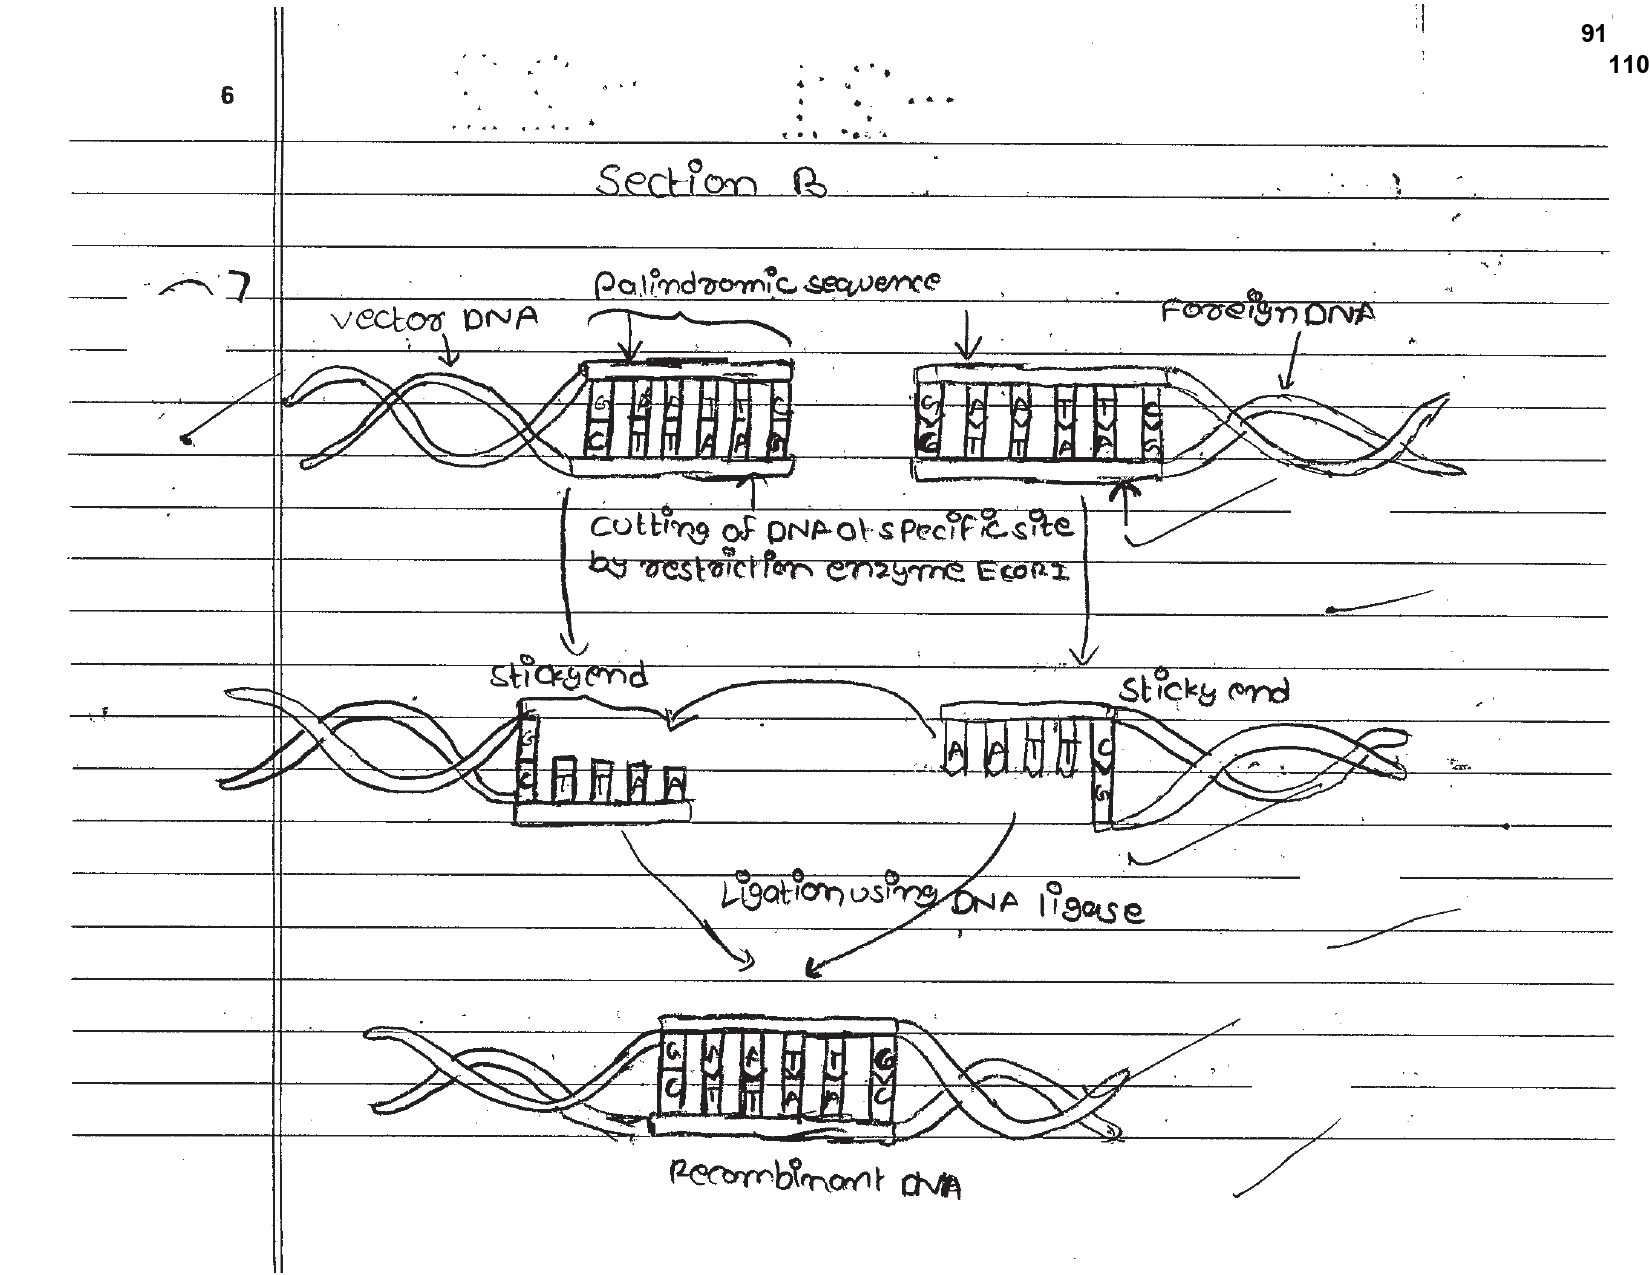 91
110
6
Section B
7
Palindromic sequence
Vector DNA
Foreign DNA
G A A T T C
C T T A A G
G A A T T C
C T T A A G
Cutting of DNA at specific site
by restriction enzyme EcoRI
Sticky end
Sticky end
G
C T T A A
A A T T C
G
Ligation using DNA ligase
G A A T T G
C T T A A C
Recombinant DNA